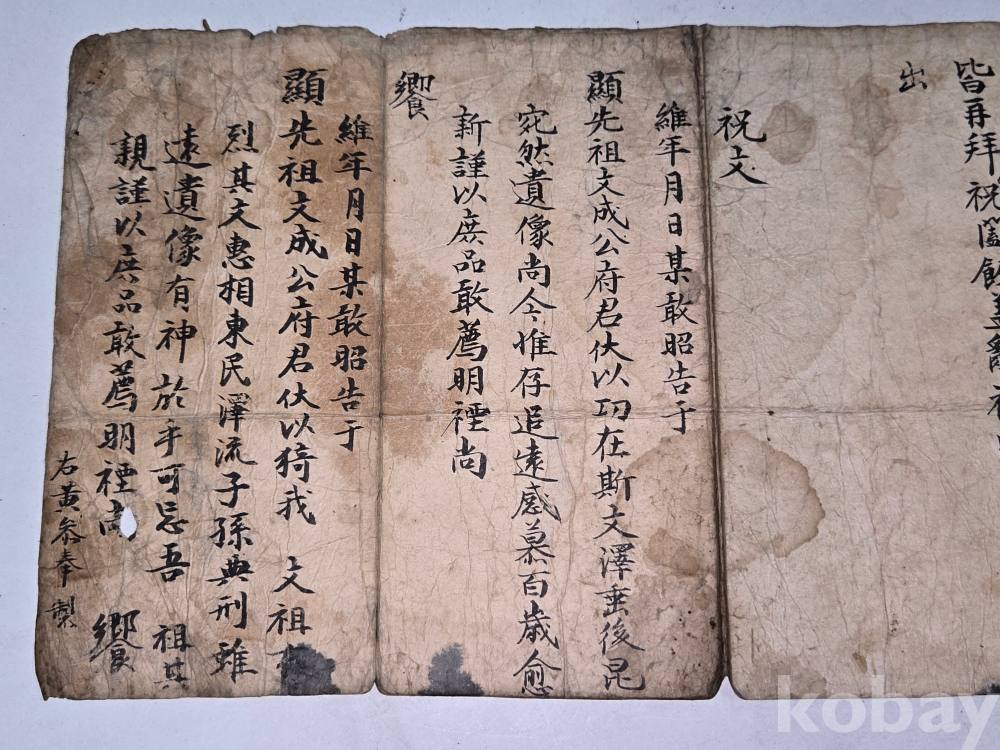 皆再拜祝闔
出
祝文
維年月日某敢昭告于
顯先祖文成公府君伏以功在斯文澤垂後昆
宛然遺像尚今惟存追遠感慕百歲愈
新謹以庶品敢薦明禋尚
饗
維年月日某敢昭告于
顯先祖文成公府君伏以猗我 文祖
烈其文惠相東民澤流子孫典刑雖
遠遺像有神於乎可忘吾 祖其
親謹以庶品敢薦明禋尚 饗
右黃參奉製
kobay